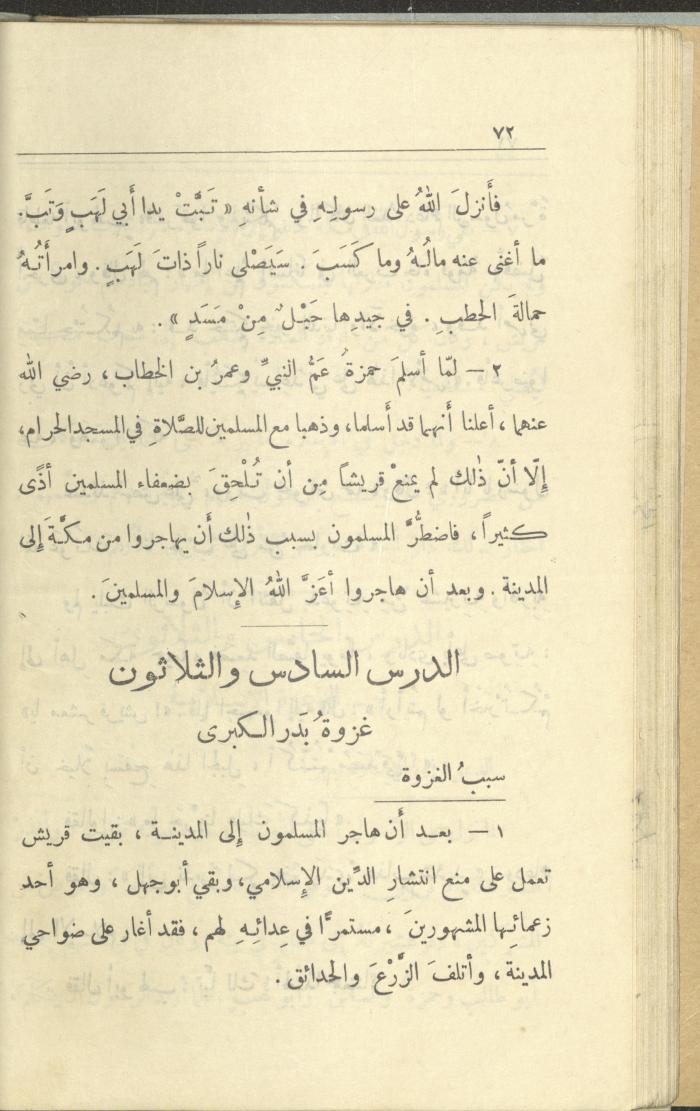 ٧٢
فأَنزلَ اللهُ على رسولِهِ في شأنهِ « تَبَّتْ يدا أَبي لَهَبٍ وَتَبَّ.
ما أَغنى عنه مالُهُ وما كَسَبَ . سَيَصْلى ناراً ذاتَ لَهَبٍ . وامرأَتُهُ
حمالةَ الحطبِ . في جيدِها حَبْلٌ مِنْ مَسَدٍ » .
٢ — لمّا أسلمَ حمزةُ عَمُّ النبيِّ وعمرُ بن الخطاب ، رضي الله
عنهما ، أعلنا أَنهما قد أَسلما، وذهبا مع المسلمين للصَّلاةِ في المسجد الحرام،
إِلّا أنّ ذٰلك لم يمنعْ قريشاً مِن أن تُلْحِقَ بضعفاء المسلمين أذًى
كثيراً ، فاضطُرَّ المسلمون بسبب ذٰلك أَن يهاجروا من مكَّةَ إِلى
المدينة . وبعد أن هاجروا أَعَزَّ اللهُ الإِسلامَ والمسلمينَ .
الدرس السادس والثلاثون
غزوةُ بَدَر الكبرى
سببُ الغزوة
١ — بعد أَن هاجر المسلمون إِلى المدينة ، بقيت قريش
تعمل على منع انتشارِ الدِّين الإِسلامي، وبقي أبوجهل ، وهو أحد
زعمائِها المشهورينَ ، مستمرًّا في عِدائِهِ لهم ، فقد أغار على ضواحي
المدينة ، وأتلفَ الزَّرْعَ والحدائق .